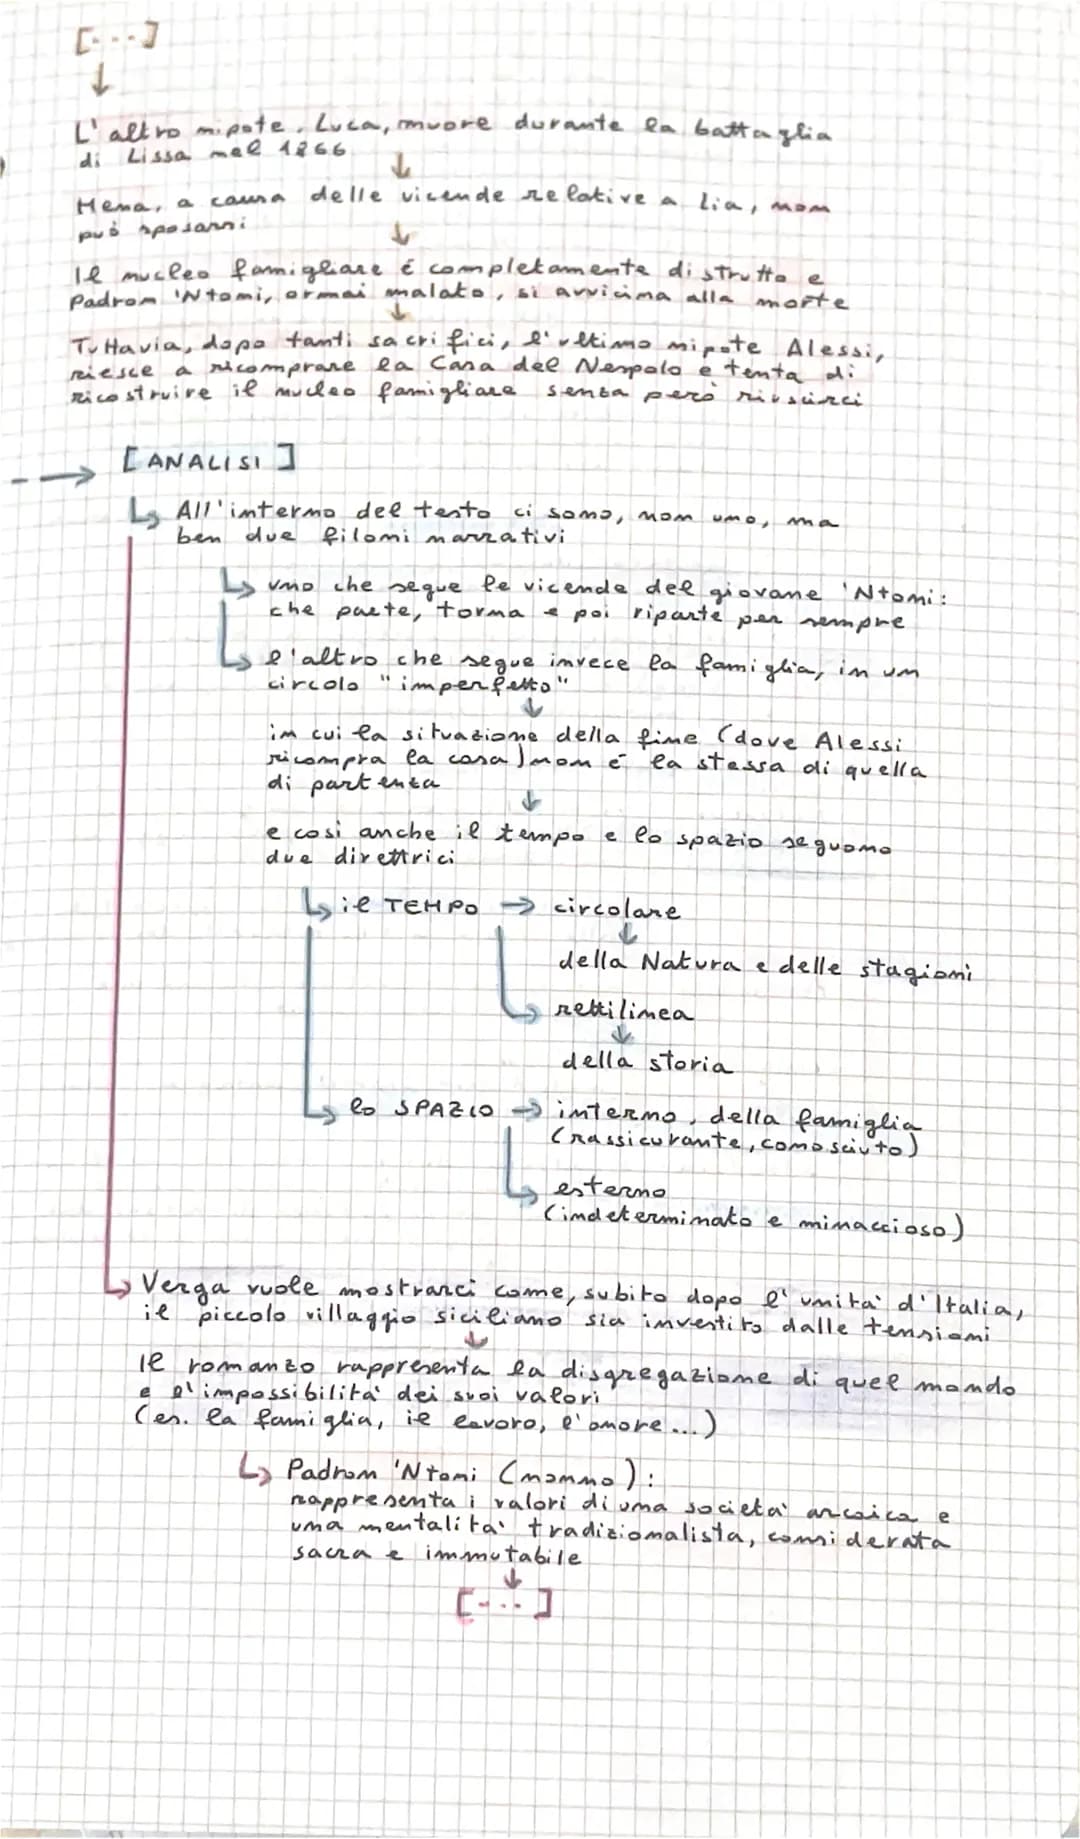 [...]
↓
L'altro nipote, Luca, muore durante la battaglia
di Lissa nel 1866
↓
Mena, a causa delle vicende relative a Lia, non
può sposarsi
↓
Il nucleo famigliare è completamente distrutto e
Padron 'Ntoni, ormai malato, si avvicina alla morte
↓
Tuttavia, dopo tanti sacrifici, l'ultimo nipote Alessi,
riesce a ricomprare la Casa del Nespolo e tenta di
ricostruire il nucleo famigliare senza però riuscirci
[ANALISI]
All'interno del testo ci sono, non uno, ma
ben due filoni narrativi
uno che segue le vicende del giovane 'Ntoni:
che parte, torna e poi riparte per sempre
l'altro che segue invece la famiglia, in un
circolo "imperfetto"
↓
in cui la situazione della fine (dove Alessi
ricompra la casa) non è la stessa di quella
di partenza
↓
e così anche il tempo e lo spazio seguono
due direttrici
il TEMPO → circolare
↓
della Natura e delle stagioni
rettilinea
↓
della storia
lo SPAZIO → interno, della famiglia
(rassicurante, conosciuto)
esterno
(indeterminato e minaccioso)
Verga vuole mostrarci come, subito dopo l'unità d'Italia,
il piccolo villaggio siciliano sia investito dalle tensioni
↓
Il romanzo rappresenta la disgregazione di quel mondo
e l'impossibilità dei suoi valori
(es. la famiglia, il lavoro, l'amore...)
Padron 'Ntoni (nonno):
rappresenta i valori di una società arcaica e
una mentalità tradizionalista, considerata
sacra e immutabile
↓
[...]